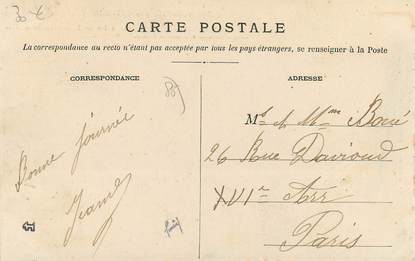 30 €
CARTE POSTALE
La correspondance au recto n'étant pas acceptée par tous les pays étrangers, se renseigner à la Poste
CORRESPONDANCE
ADRESSE
Bonne journée
Jeanne
Mr & Mme Boué
26 Rue Davioud
XVIe Arr
Paris